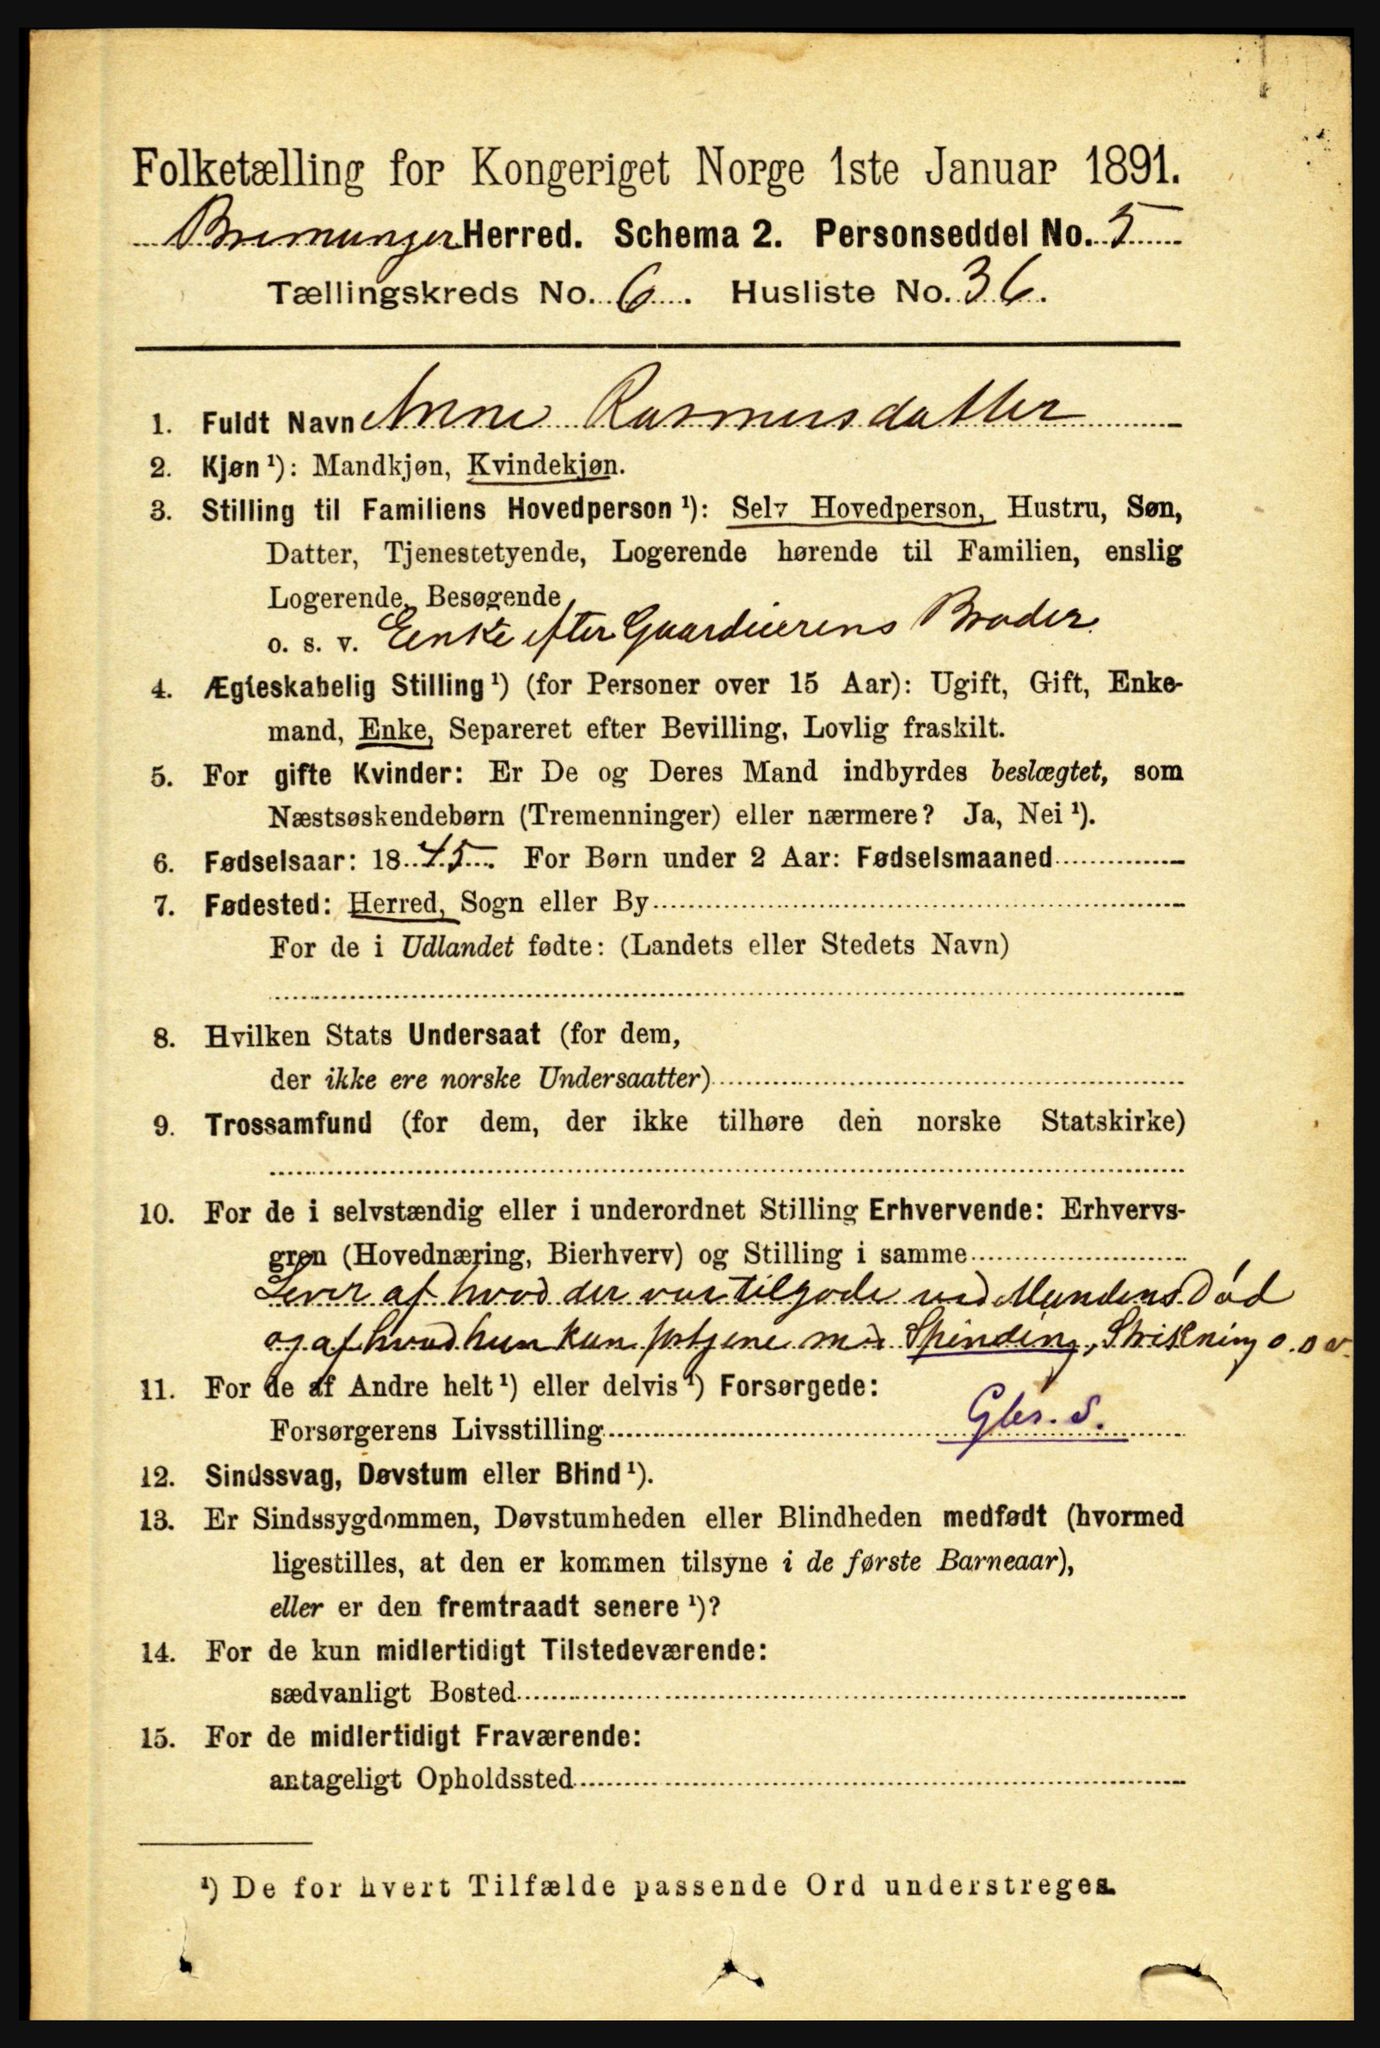 Folketælling for Kongeriget Norge 1ste Januar 1891.
Bremanger Herred. Schema 2. Personseddel No. 5
Tællingskreds No. 6. Husliste No. 36.
1. Fuldt Navn Anne Rasmusdatter
2. Kjøn ¹): Mandkjøn, Kvindekjøn.
3. Stilling til Familiens Hovedperson ¹): Selv Hovedperson, Hustru, Søn,
Datter, Tjenestetyende, Logerende hørende til Familien, enslig
Logerende, Besøgende
o. s. v. Eenke efter Gaardeierens Broder
4. Ægteskabelig Stilling ¹) (for Personer over 15 Aar): Ugift, Gift, Enke-
mand, Enke, Separeret efter Bevilling, Lovlig fraskilt.
5. For gifte Kvinder: Er De og Deres Mand indbyrdes beslægtet, som
Næstsøskendebørn (Tremenninger) eller nærmere? Ja, Nei ¹).
6. Fødselsaar: 1845. For Børn under 2 Aar: Fødselsmaaned
7. Fødested: Herred, Sogn eller By
For de i Udlandet fødte: (Landets eller Stedets Navn)
8. Hvilken Stats Undersaat (for dem,
der ikke ere norske Undersaatter)
9. Trossamfund (for dem, der ikke tilhøre den norske Statskirke)
10. For de i selvstændig eller i underordnet Stilling Erhvervende: Erhvervs-
gren (Hovednæring, Bierhverv) og Stilling i samme
Lever af hvad der var tilgode ved Mandens Død
og af hvad hun kan fortjene med Spinding, Strikning o. s v.
11. For de af Andre helt ¹) eller delvis ¹) Forsørgede:
Forsørgerens Livsstilling Gbr. S.
12. Sindssvag, Døvstum eller Blind ¹).
13. Er Sindssygdommen, Døvstumheden eller Blindheden medfødt (hvormed
ligestilles, at den er kommen tilsyne i de første Barneaar),
eller er den fremtraadt senere ¹)?
14. For de kun midlertidigt Tilstedeværende:
sædvanligt Bosted
15. For de midlertidigt Fraværende:
antageligt Opholdssted
¹) De for hvert Tilfælde passende Ord understreges.